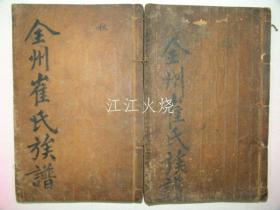 全州崔氏族譜
秋
全州崔氏族譜
江江火烧